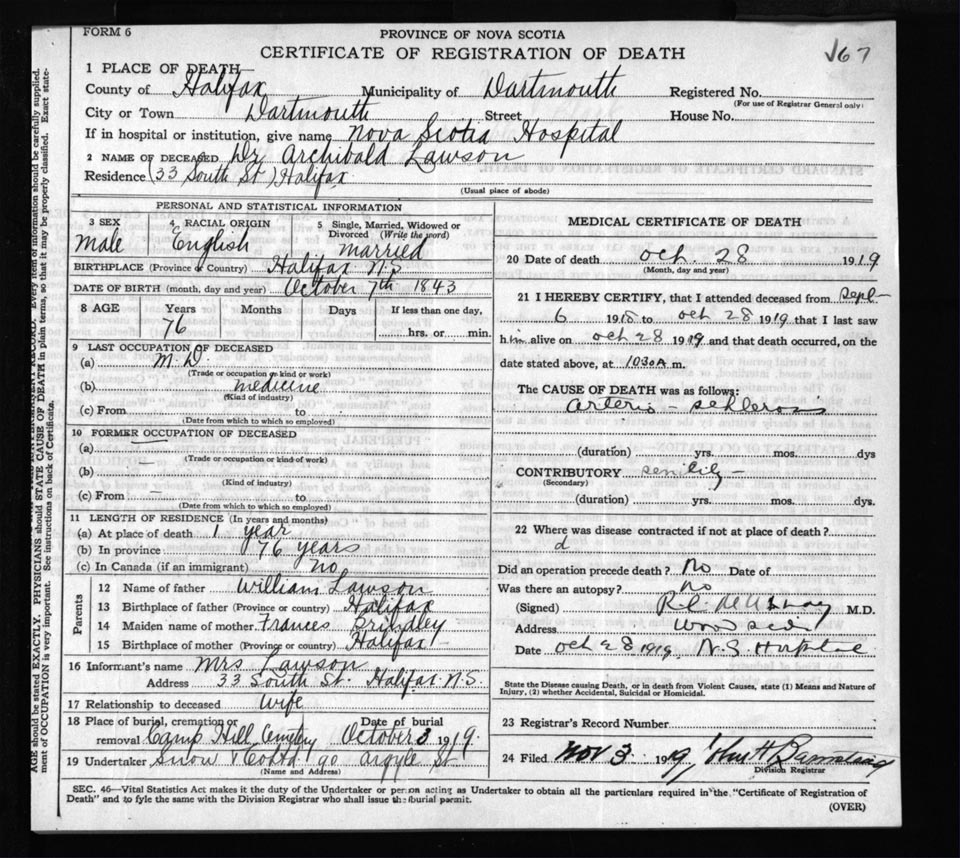 FORM 6
PROVINCE OF NOVA SCOTIA
CERTIFICATE OF REGISTRATION OF DEATH
167
1 PLACE OF DEATH
County of Halifax Municipality of Dartmouth Registered No.
(For use of Registrar General only)
City or Town Dartmouth Street House No.
If in hospital or institution, give name Nova Scotia Hospital
2 NAME OF DECEASED Dr Archibald Lawson
Residence (33 South St) Halifax
(Usual place of abode)
PERSONAL AND STATISTICAL INFORMATION
3 SEX 4 RACIAL ORIGIN 5 Single, Married, Widowed or Divorced (Write the word)
Male English married
BIRTHPLACE (Province or Country) Halifax N.S
DATE OF BIRTH (month, day and year) October 7th 1843
8 AGE Years Months Days If less than one day,
76 hrs. or min.
9 LAST OCCUPATION OF DECEASED
(a) M.D.
(Trade or occupation or kind or work)
(b) medicine
(Kind of industry)
(c) From to
(Date from which to which so employed)
10 FORMER OCCUPATION OF DECEASED
(a)
(Trade or occupation or kind of work)
(b) —
(Kind of industry)
(c) From — to
(Date from which to which so employed)
11 LENGTH OF RESIDENCE (In years and months)
(a) At place of death 1 year
(b) In province 76 years
(c) In Canada (if an immigrant) no
Parents
12 Name of father William Lawson
13 Birthplace of father (Province or Country) Halifax
14 Maiden name of mother Frances Brindley
15 Birthplace of mother (Province or Country) Halifax
16 Informant's name Mrs Lawson
Address 33 South St. Halifax N.S.
17 Relationship to deceased Wife
18 Place of burial, cremation or removal Camp Hill Date of burial October 3 1919.
19 Undertaker Snow 90 Argyle St
(Name and Address)
MEDICAL CERTIFICATE OF DEATH
20 Date of death Oct. 28 1919
(Month, day and year)
21 I HEREBY CERTIFY, that I attended deceased from Sept
6 1918 to Oct 28 1919 that I last saw
him alive on Oct 28 1919 and that death occurred, on the
date stated above, at 1030 A m.
The CAUSE OF DEATH was as follows:
Arterio -
(duration) yrs. mos. dys
CONTRIBUTORY senility -
(Secondary)
(duration) yrs. mos. dys.
22 Where was disease contracted if not at place of death?
Did an operation precede death? No Date of
Was there an autopsy? no
(Signed) M.D.
Address
Date Oct 28 1919, N.S. Hospital
State the Disease causing Death, or in death from Violent Causes, state (1) Means and Nature of
Injury, (2) whether Accidental, Suicidal or Homicidal.
23 Registrar's Record Number
24 Filed Nov 3 1919
Division Registrar
SEC. 46—Vital Statistics Act makes it the duty of the Undertaker or person acting as Undertaker to obtain all the particulars required in the "Certificate of Registration of
Death" and to fyle the same with the Division Registrar who shall issue the burial permit.
(OVER)
AGE should be stated EXACTLY. PHYSICIANS should STATE CAUSE OF DEATH in plain terms, so that it may be properly classified. Exact state-
ment of OCCUPATION is very important. See instructions on back of Certificate.